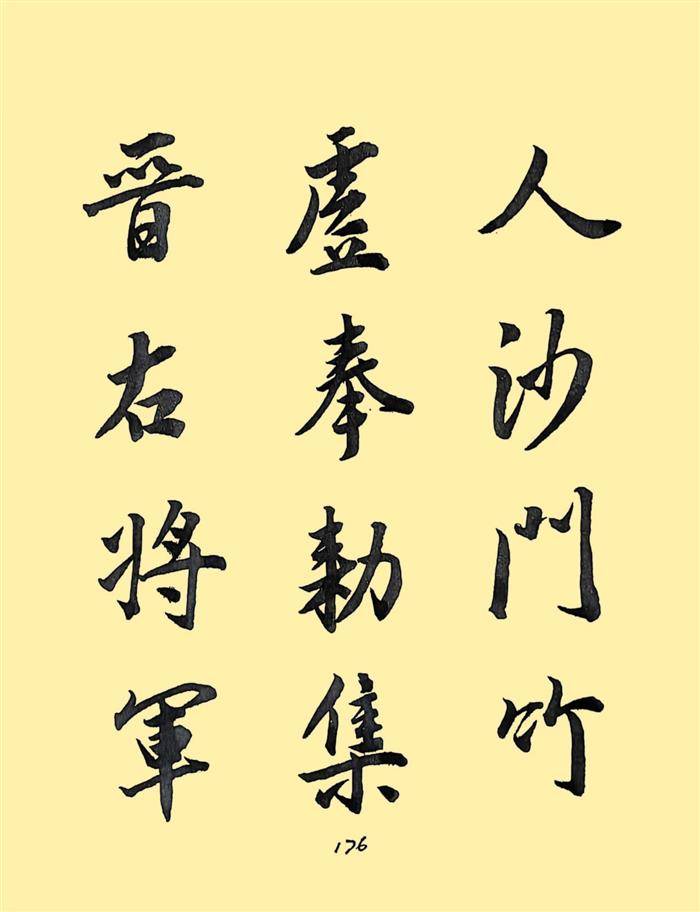 人沙門竹
虛奉勑集
晉右將軍
176